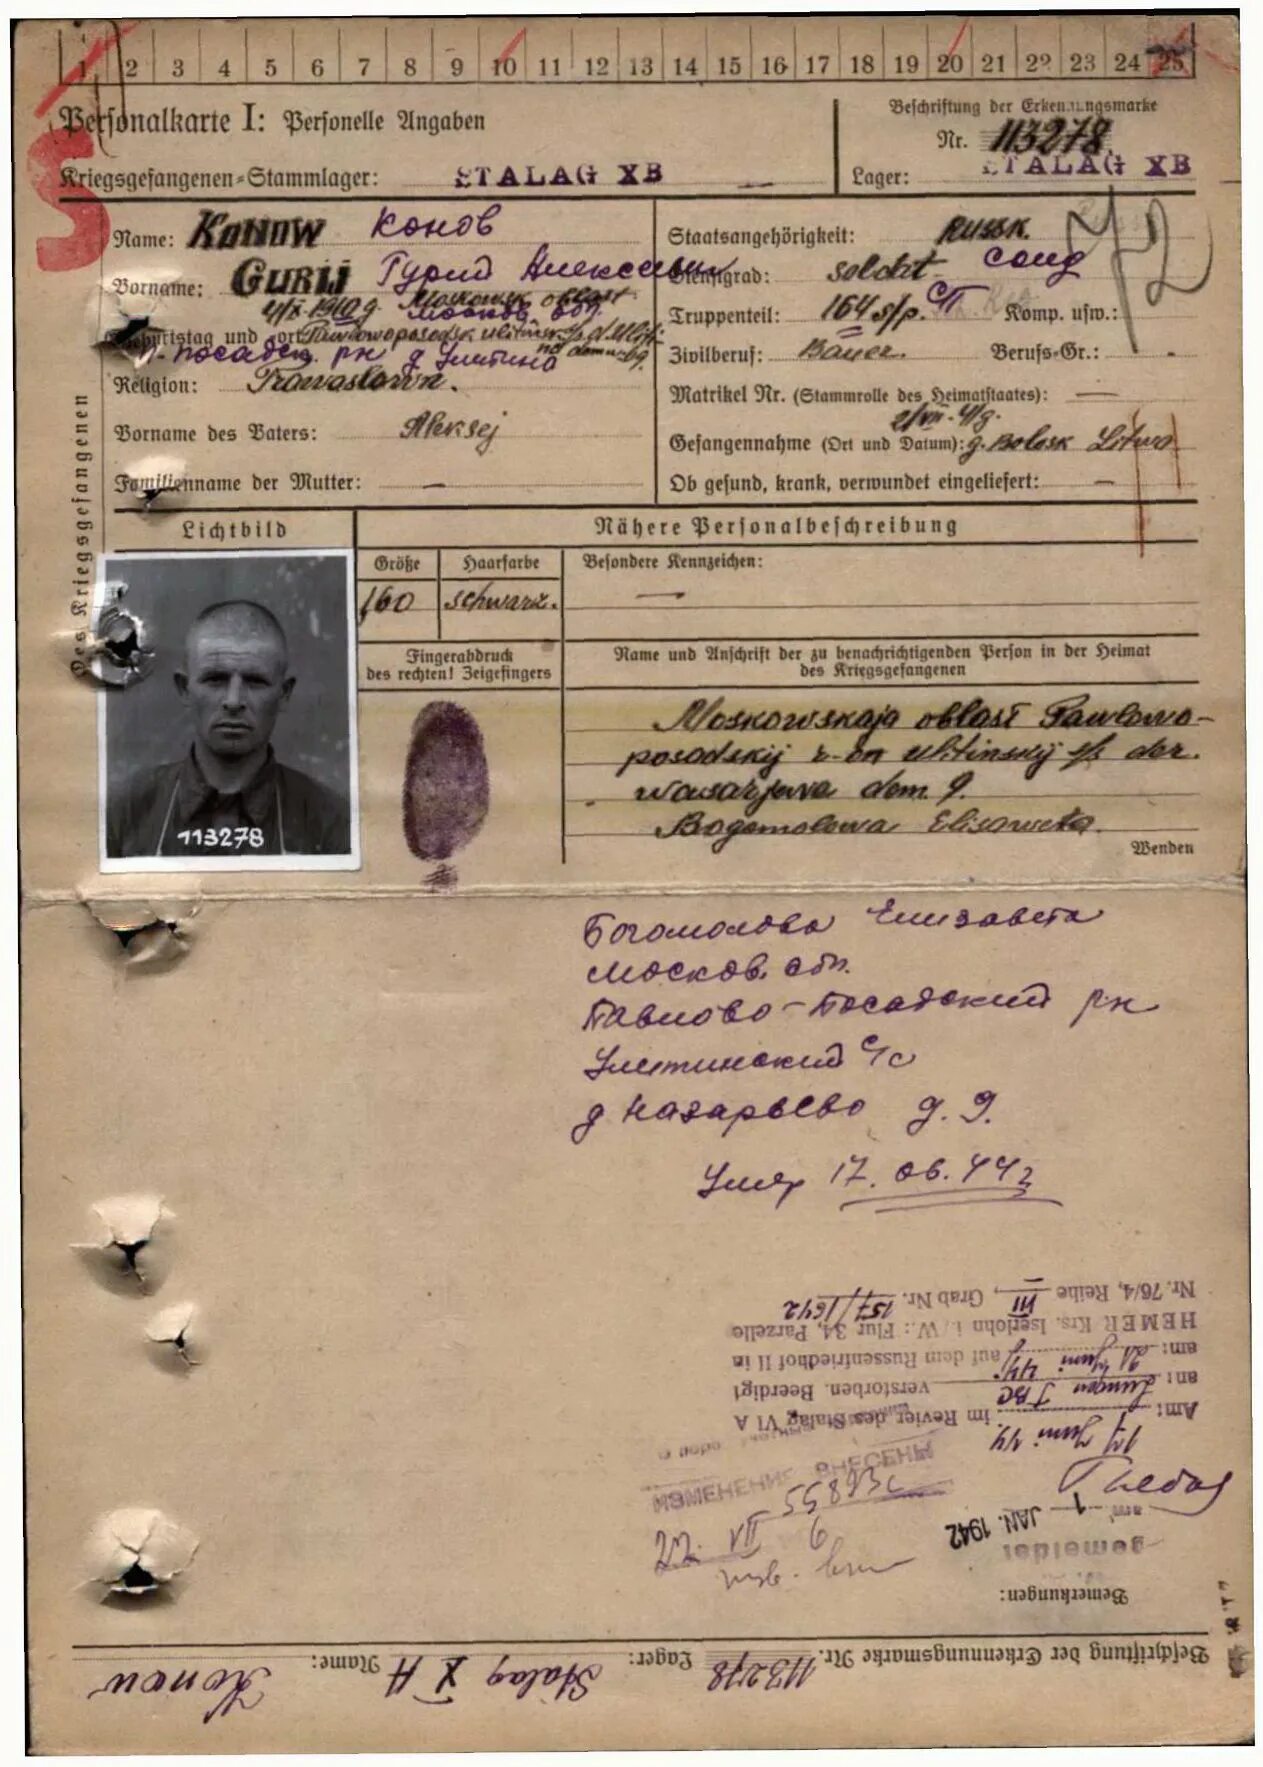 1 2 3 4 5 6 7 8 9 10 11 12 13 14 15 16 17 18 19 20 21 22 23 24 25
Personalkarte I: Personelle Angaben
Beschriftung der Erkennungsmarke
Nr. 113278
Kriegsgefangenen=Stammlager: STALAG XB
Lager: STALAG XB
S
Name: KONOW Конов
Staatsangehörigkeit: RUSSK.
72
Vorname: GURIJ Гурий Алексеевич
Dienstgrad: soldat солд
Moskowsk. oblast
Москов. обл.
Truppenteil: 164 s/p. СП Komp. usw.:
Geburtstag und -ort:
П-посадск. рн д Улитино
Zivilberuf: Bauer. Berufs-Gr.: -
Religion: Prawoslawn.
Matrikel Nr. (Stammrolle des Heimatstaates): —
Vorname des Vaters: Aleksej
2/VII-41g.
Gefangennahme (Ort und Datum): g. Litwa
Familienname der Mutter: —
Ob gesund, krank, verwundet eingeliefert: —
Des Kriegsgefangenen
Lichtbild
Nähere Personalbeschreibung
Größe Haarfarbe Besondere Kennzeichen:
160 schwarz. —
Fingerabdruck
des rechten! Zeigefingers
Name und Anschrift der zu benachrichtigenden Person in der Heimat
des Kriegsgefangenen
113278
Moskowskaja oblast Pawlowo-
posadskij r-on Ulitinskij s/s der.
dom 9.
Bogomolowa Elisaweta
Wenden
Богомолова Елизавета
Москов. обл.
Павлово-Посадский рн
Улитинский с/с
д Назарьево д. 9.
Умер 17.06.44г
Beschriftung der Erkennungsmarke Nr. 113278 Lager: Stalag X A Name: Konow
Bemerkungen:
gemeldet
am 1 - JAN. 1942
22. VII
55893с
ИЗМЕНЕНИЕ ВНЕСЕНЫ
17 Juni 44
Am: im Revier des Stalag VI A
an: Lungen TBC verstorben. Beerdigt
am: 21 Juni 44 auf dem Russenfriedhof II in
HEMER Krs. Iserlohn i./W.: Flur 34, Parzelle
Nr. 76/4, Reihe III, Grab Nr. 157/1642